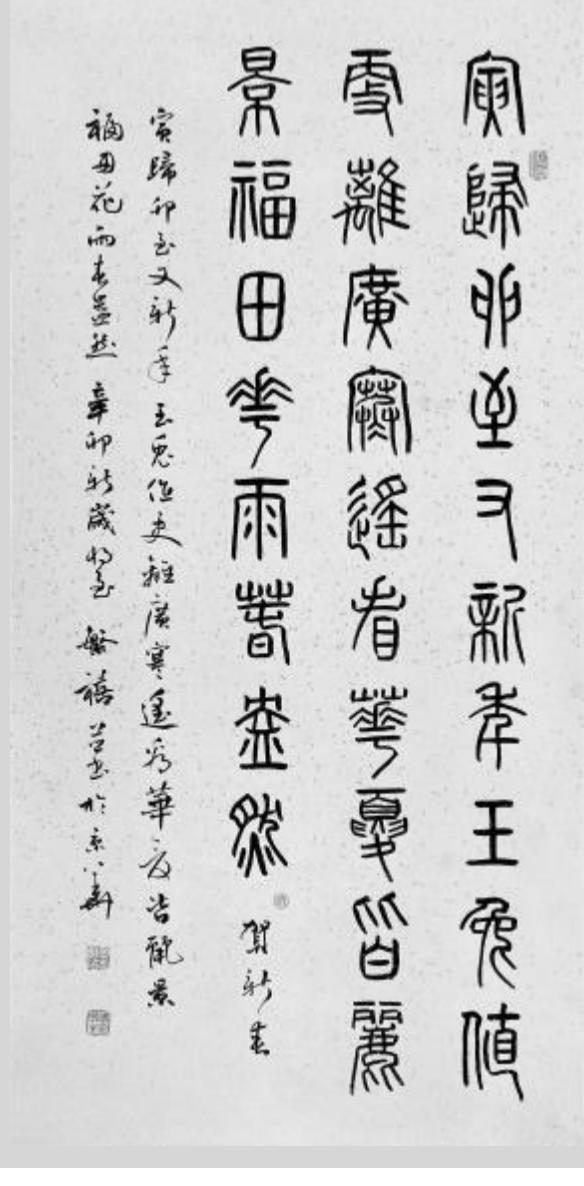 寅歸卯至又新年玉兔值
更離廣寒遙看華夏皆麗
景福田花雨春盎然 賀新春
寅歸卯至又新年玉兔值更離廣寒遙看華夏皆麗景
福田花雨春盎然 辛卯新歲將至 禧書於京華